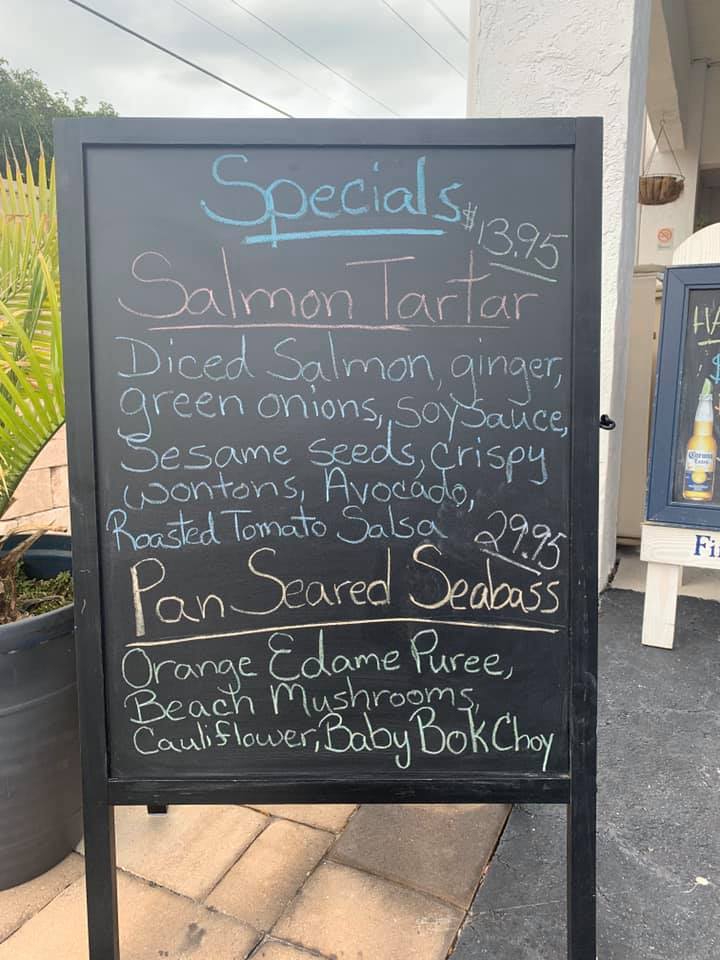 Specials
$13.95
Salmon Tartar
Diced Salmon, ginger,
green onions, soy sauce,
Sesame seeds, crispy
wontons, Avocado,
Roasted Tomato Salsa
29.95
Pan Seared Seabass
Orange Edame Puree,
Beach Mushrooms,
Cauliflower, Baby Bok Choy
Corona
Extra